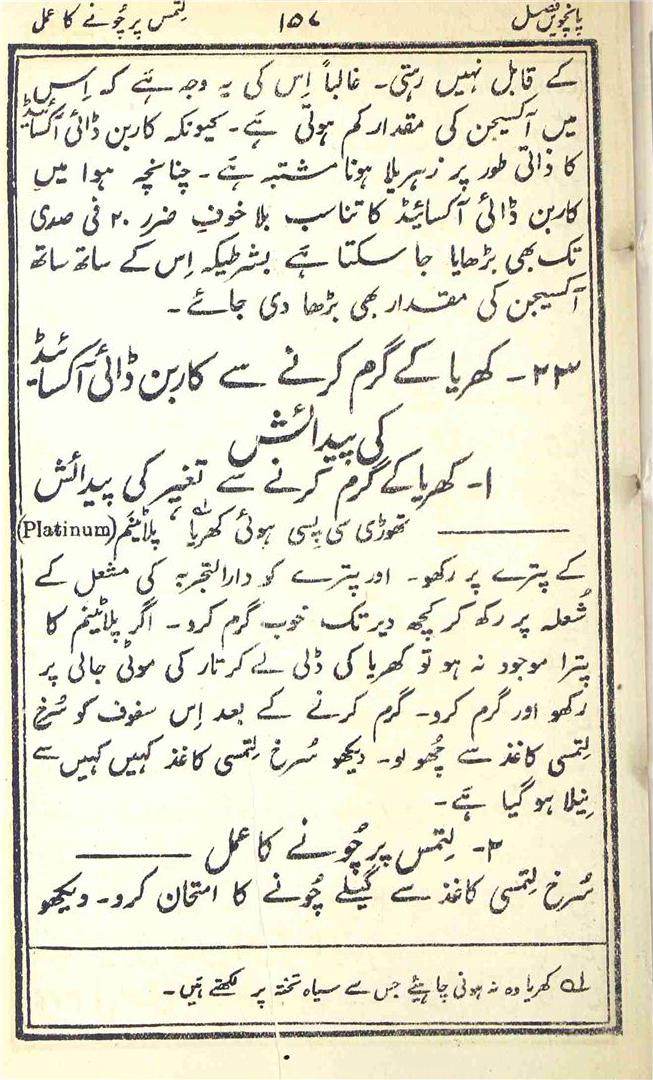 پانچویں فصل ۱۵۷ لِتمس پر چُونے کا عمل
کے قابل نہیں رہتی۔ غالباً اِس کی یہ وجہ ہے کہ اِس
میں آکسیجن کی مقدار کم ہوتی ہے۔ کیونکہ کاربن ڈائی آکسائیڈ
کا ذاتی طور پر زہریلا ہونا مشتبہ ہے۔ چنانچہ ہوا میں
کاربن ڈائی آکسائیڈ کا تناسب بلا خوفِ ضرر ۲۰ فی صدی
تک بھی بڑھایا جا سکتا ہے بشرطیکہ اِس کے ساتھ ساتھ
آکسیجن کی مقدار بھی بڑھا دی جائے۔
۲۳۔ کھریا کے گرم کرنے سے کاربن ڈائی آکسائیڈ
کی پیدائش
۱۔ کھریا کے گرم کرنے سے تغیر کی پیدائش
ــــــــ تھوڑی سی پسی ہوئی کھریا لہ، پلاٹینَم (Platinum)
کے پترے پر رکھو۔ اور پترے کو دارالتجربہ کی مشعل کے
شُعلہ پر رکھ کر کچھ دیر تک خوب گرم کرو۔ اگر پلاٹینَم کا
پترا موجود نہ ہو تو کھریا کی ڈلی لے کر تار کی موٹی جالی پر
رکھو اور گرم کرو۔ گرم کرنے کے بعد اِس سفوف کو سُرخ
لِتمسی کاغذ سے چُھو لو۔ دیکھو سُرخ لِتمسی کاغذ کہیں کہیں سے
نِیلا ہو گیا ہے۔
۲۔ لِتمس پر چُونے کا عمل ــــــــ
سُرخ لِتمسی کاغذ سے گیلے چُونے کا امتحان کرو۔ دیکھو
لہ کھریا وہ نہ ہونی چاہیئے جس سے سیاہ تختہ پر لکھتے ہیں۔